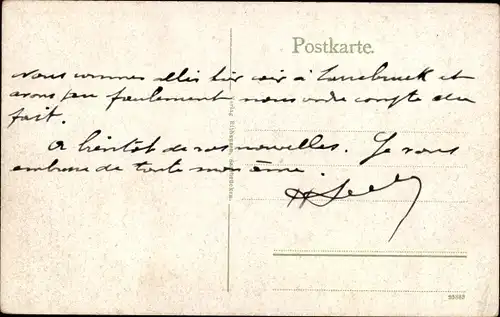 Postkarte.
nous sommes allés hier soir à Sarrebruck et
avons pu seulement nous rendre compte du
fait.
A bientôt de vos nouvelles. Je vous
embrasse de toute mon âme.